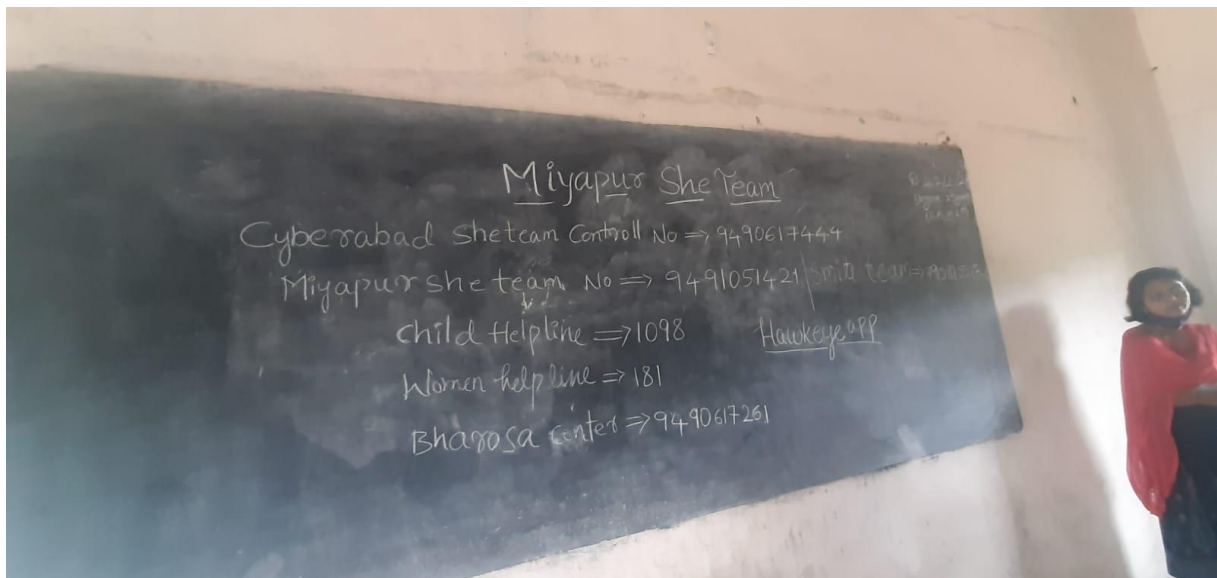 Miyapur She Team
Cyberabad Sheteam Controll No => 9490617444
Miyapur she team No => 9491051421 | Smita team =>
Child Helpline => 1098 Hawkeye app
Women helpline => 181
Bharosa Center => 9490617261